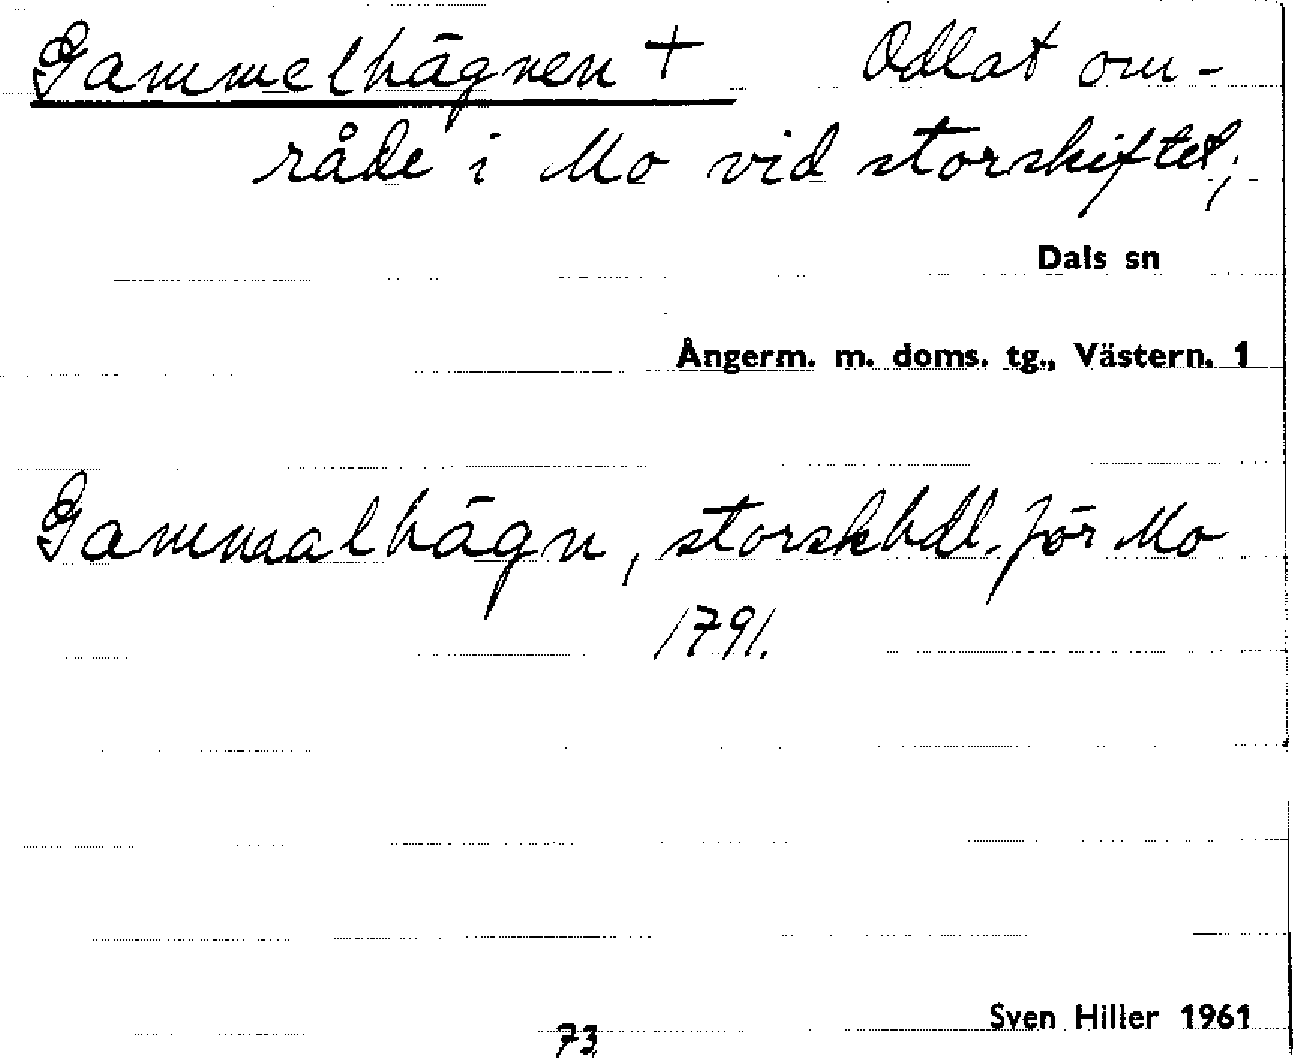 Gammelhägnen + Odlat om-
råde i Mo vid storskiftet;
Dals sn
Ångerm. m. doms. tg., Västern. 1
Gammalhägn, storskhdl. för Mo
1791.
Sven Hiller 1961
73